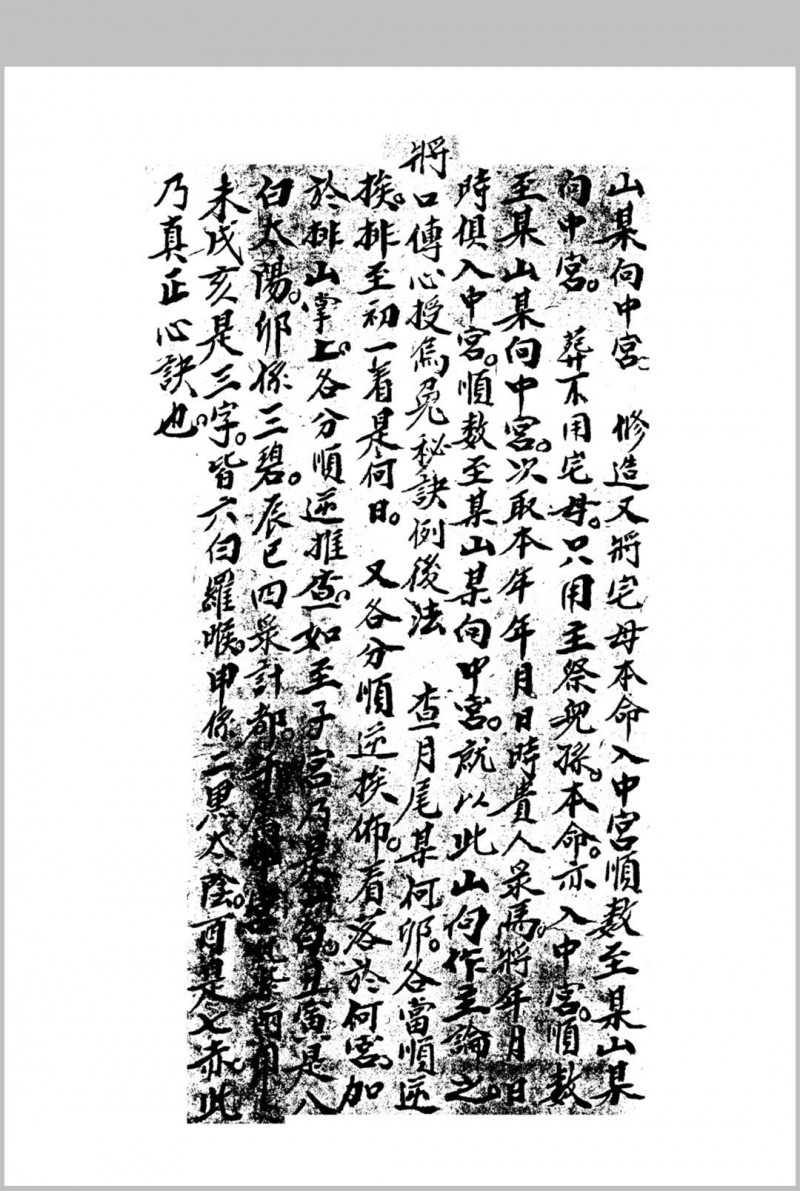 山某向中宮 修造又將宅母本命入中宮順数至某山某
向中宮。 葬不用宅母。只用主祭兒孫。本命。亦入中宮。順数
至某山某向中宮。次取本年年月日時貴人馬。將年月日
時俱入中宮。順数至某山某向中宮。就以此山向作主論之
將口傳心授烏兔秘訣例後法 查月尾某何卯。各當順逆
挨。排至初一看是何日。 又各分順逆挨佈。看落於何宮。加
於排山掌上。各分順逆推。如至子宮乃是白。丑寅是八
白太陽。卯係三碧。辰巳四計都。
未戌亥是三字。皆六白羅睺。申係二黑太陰。酉是七赤。此
乃真正心訣也。